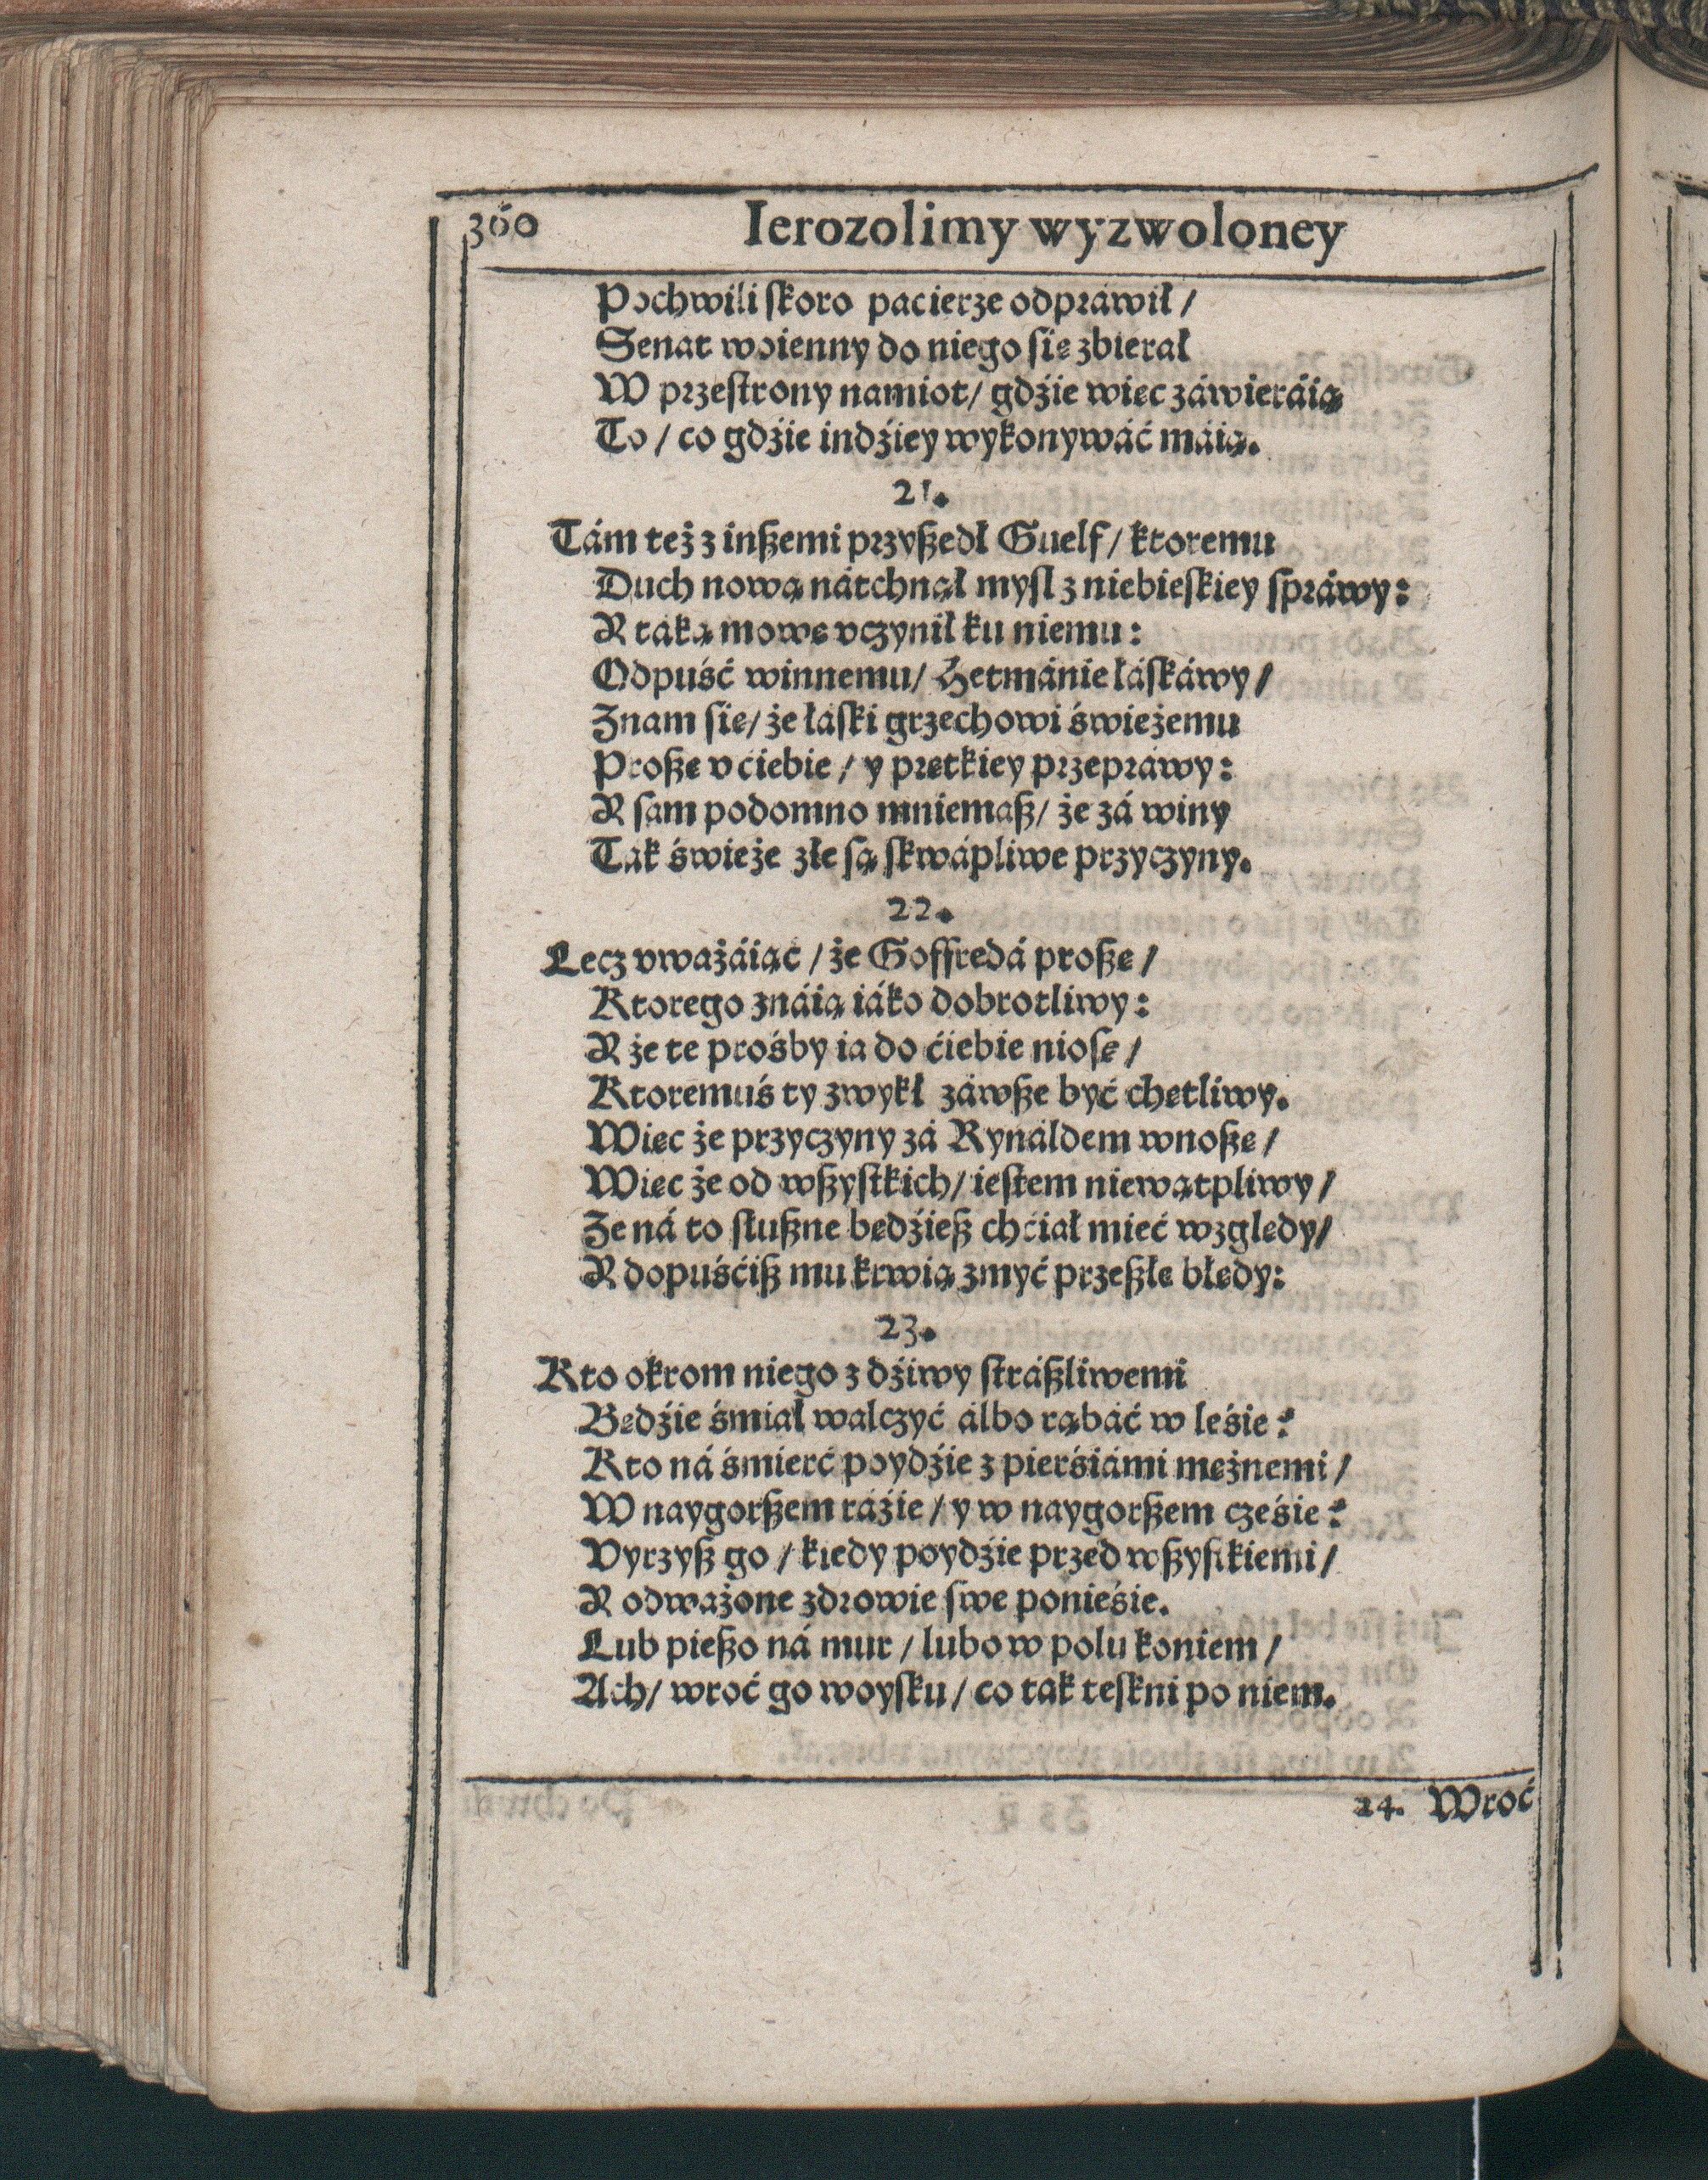 360 Ierozolimy wyzwoloney
Pochwili ſkoro pacierze odpráwił /
Senat woienny do niego ſię zbierał
W przeſtrony namiot / gdźie więc záwieráią
To / co gdźie indźiey wykonywáć máią.
21.
Tám też z inßemi przyßedł Guelf / ktoremu
Duch nową nátchnął myſl z niebieſkiey ſpráwy:
A taką mowę vczynił ku niemu:
Odpuść winnemu / Hetmánie łáſkáwy /
Znam ſię / że łáſki grzechowi świeżemu
Proßę v ćiebie / y prętkiey przepráwy:
A ſam podomno mniemaß / że zá winy
Tak świeże złe ſą ſkwápliwe przyczyny.
22.
Lecz vważáiąc / że Goffredá proßę /
Ktorego znáią iáko dobrotliwy:
A że te prośby ia do ćiebie nioſę /
Ktoremuś ty zwykł záwße być chętliwy.
Więc że przyczyny zá Rynáldem wnoßę /
Więc że od wßyſtkich / ieſtem niewątpliwy /
Że ná to ſłußne będźieß chćiał mieć względy /
A dopuśćiß mu krwią zmyć przeßłe błędy:
23.
Kto okrom niego z dźiwy ſtráßliwemi
Będźie śmiał walczyć álbo rąbáć w leśie?
Kto ná śmierć poydźie z pierśiámi mężnemi /
W naygorßem ráźie / y w naygorßem cześie?
Vyrzyß go / kiedy poydźie przed wßyſtkiemi /
A odważone zdrowie ſwe ponieśie.
Lub pießo ná mur / lubo w polu koniem /
Ach / wroć go woyſku / co tak teſkni po niem.
24. Wroć